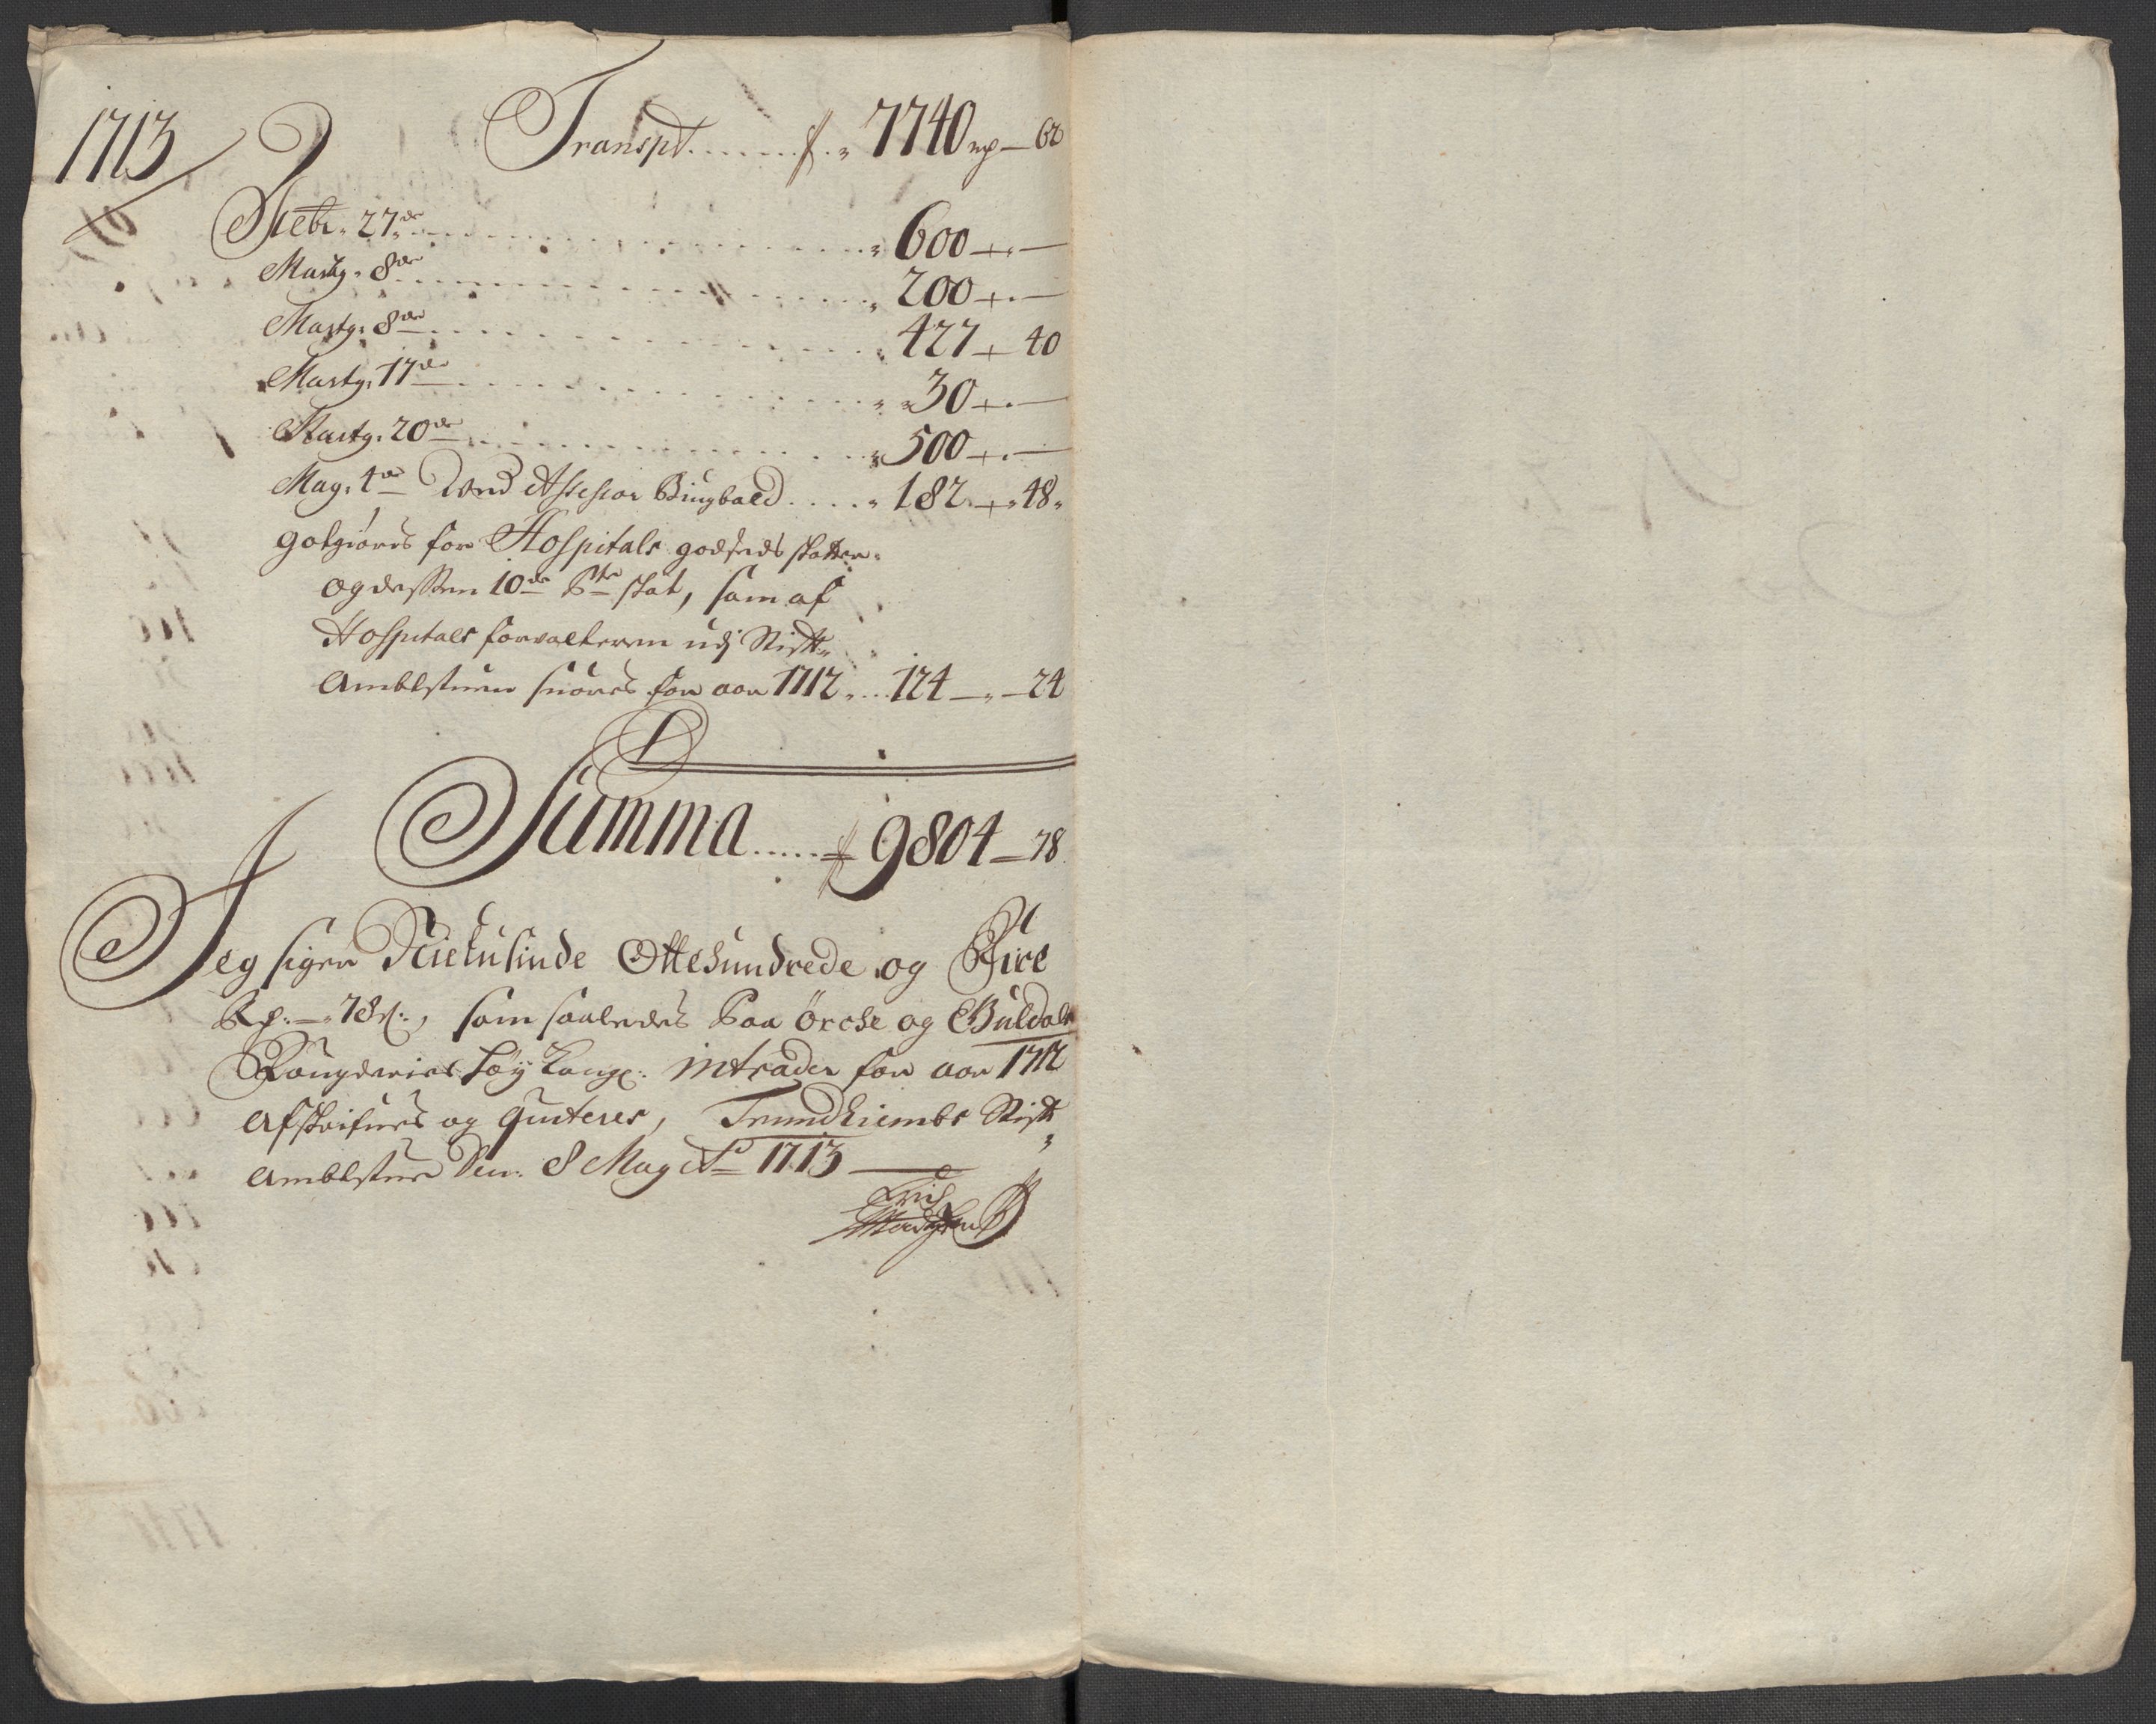 1713
Transpt. . . . . . . 7740 rd – 62
Febr. 27de . . . . . . 600 – –
Martÿ. 8de . . . . . . 200 – –
Martÿ. 8de . . . . . . 427 – 40
Martÿ. 17de . . . . . . 30 – –
Martÿ. 20de . . . . . . 500 – –
May. 4de Ved Assessor Bugbald . . . . 182 – 48
gotgiøris for Hospitals godseds skatter
og dessen 10de Pte skat, som af
Hospitals forvalteren udj Stift
Ambtstuen suares for aar 1712 . . . 124 – 24
Summa . . . . . 9804 – 78
Jeg siger Nietusinde Ottehundrede og Fire
Rd. – 78 s., som saaledes Paa Örche og Guldals
Fougderies höÿ Kongl: intrader for aar 1712
Afskrifues og quiteres, Trundhiembs Stift
Ambtstue Den: 8 May Ao 1713